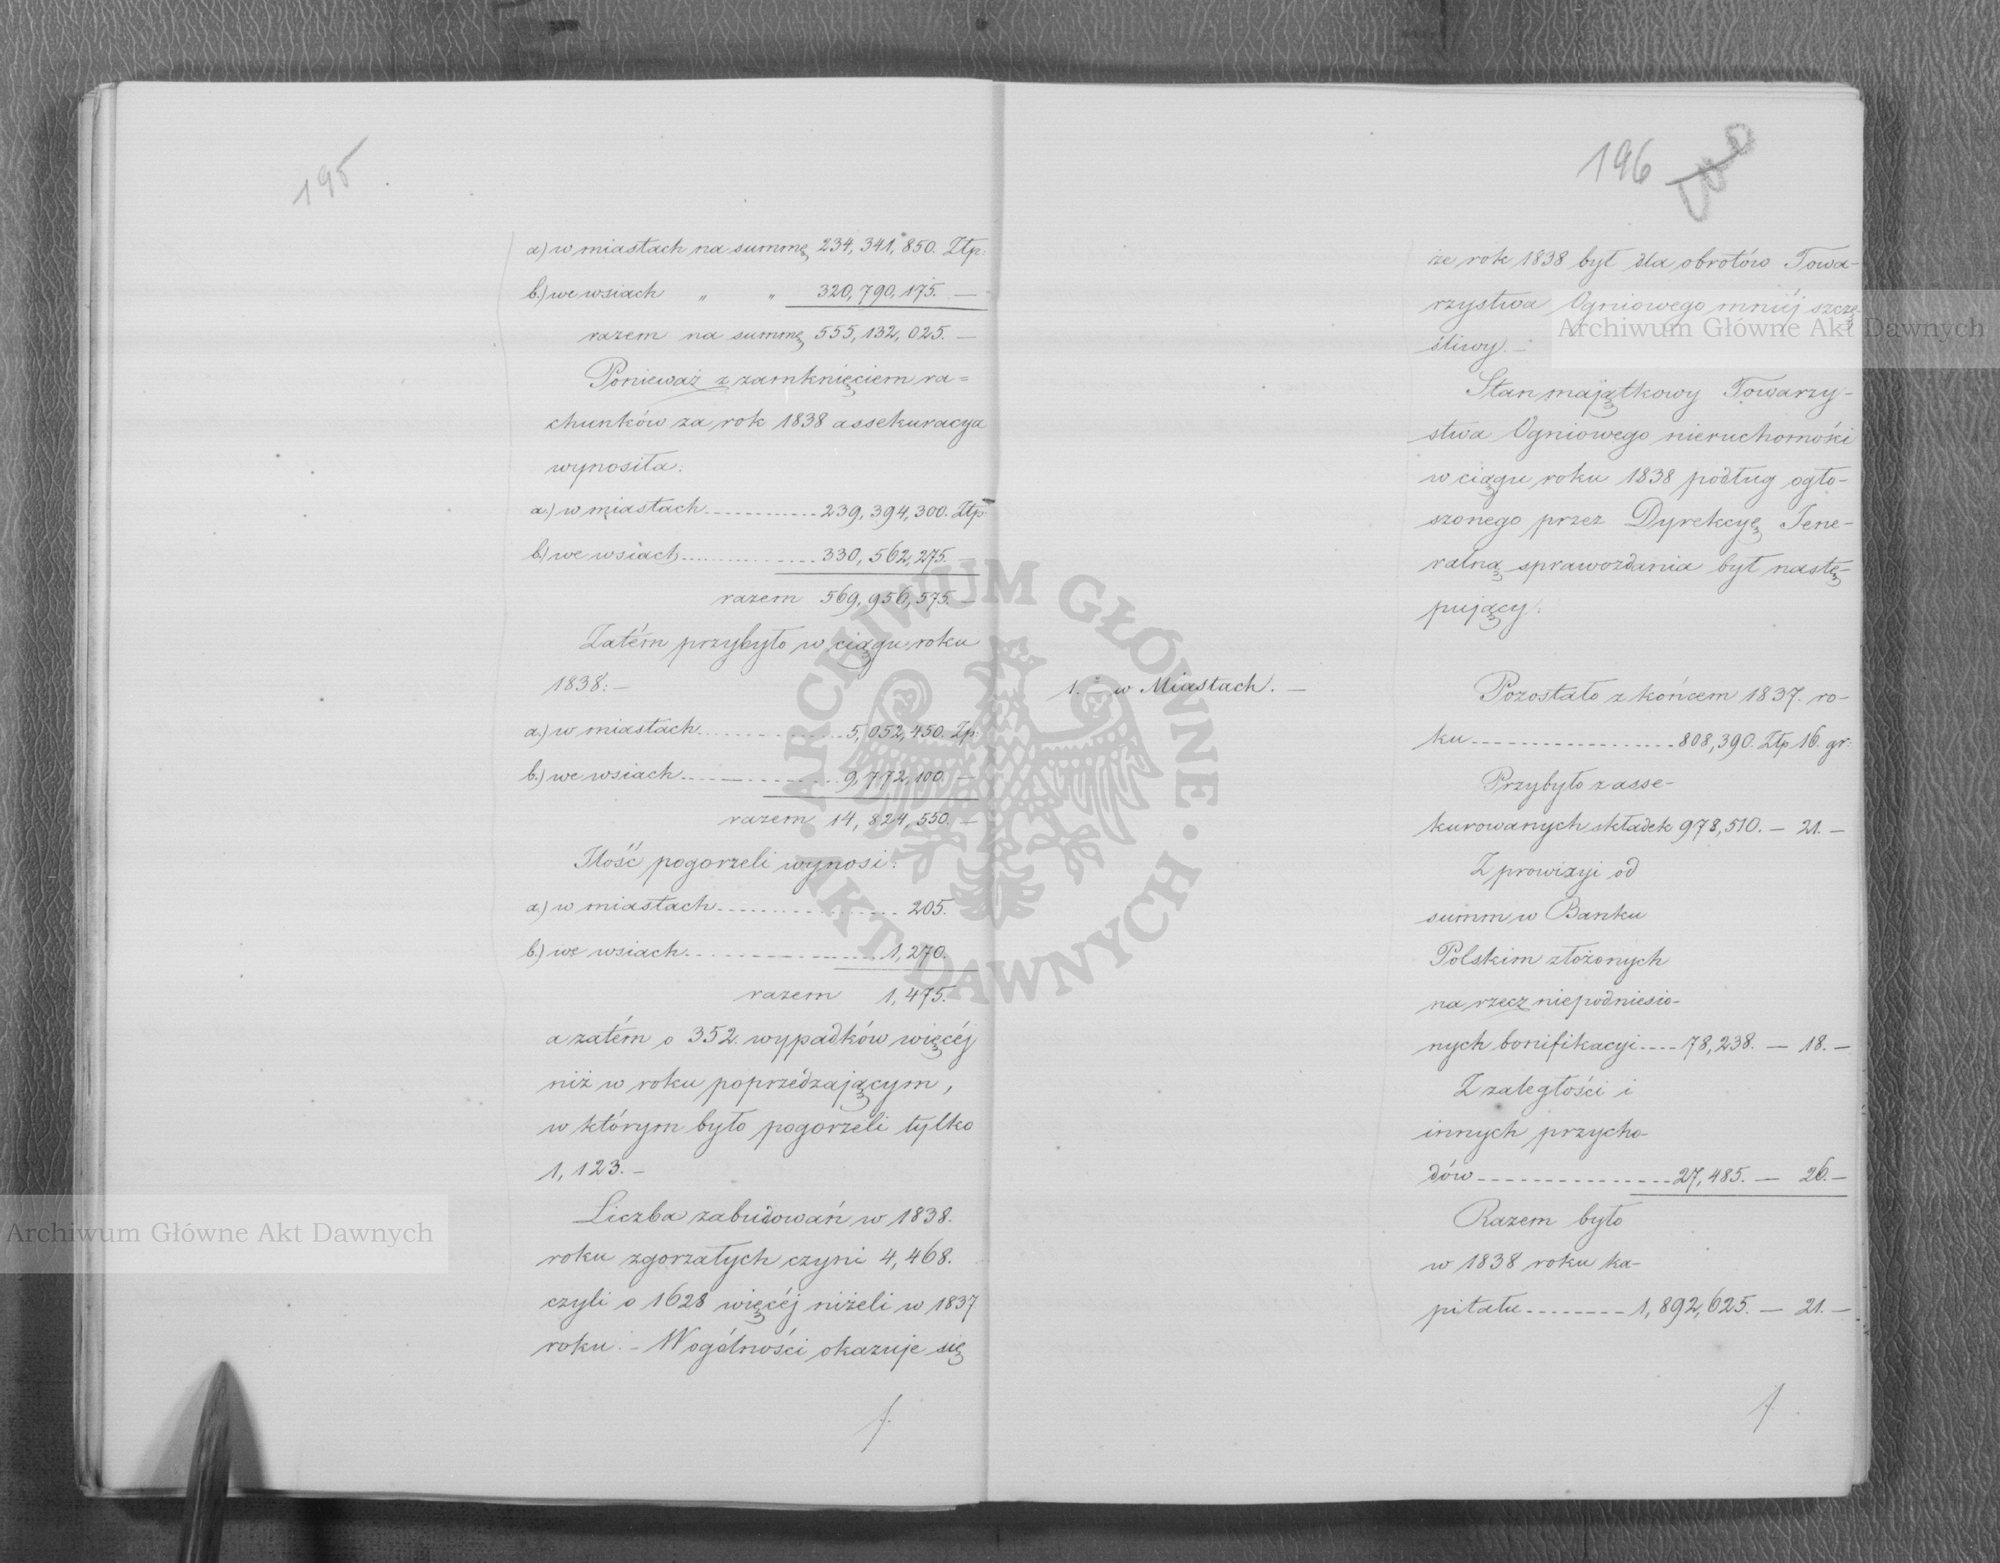 195.
a) w miastach na summę 234,341,850. Złp:
b.) we wsiach „ „ 320,790,175. —
razem na summę 555,132,025. —
Ponieważ z zamknięciem ra=
chunków za rok 1838 assekuracya
wynosiła:
a.) w miastach ............ 239,394,300. Złp
b.) we wsiach .............. 330,562,275. —
razem 569,956,575. —
Zatém przybyło w ciągu roku
1838: —
a.) w miastach .............. 5,052,450. Zp:
b.) we wsiach .............. 9,772,100. —
razem 14,824,550. —
Ilość pogorzeli wynosi:
a.) w miastach .................. 205.
b.) we wsiach .................. 1,270.
razem 1,475.
a zatém o 352. wypadków więcéj
niż w roku poprzédzającym,
w którym było pogorzeli tylko
1,123. —
Liczba zabudowań w 1838.
roku zgorzałych czyni 4,468.
czyli o 1628 więcéj niżeli w 1837
roku. — W ogólności okazuje się
196
że rok 1838 był dla obrotów Towa-
rzystwa Ogniowego mniéj szczę-
śliwy. —
Stan majątkowy Towarzy-
stwa Ogniowego nieruchomości
w ciągu roku 1838 podług ogło-
szonego przez Dyrekcyę Jene-
ralną sprawozdania był nastę-
pujący:
1. — w Miastach. —
Pozostało z końcem 1837. ro-
ku .................. 808,390. Złp 16. gr:
Przybyło z asse-
kurowanych składek 978,510. — 21. —
Z prowizyi od
summ w Banku
Polskim złożonych
na rzecz niepodniesio-
nych bonifikacyi .... 78,238. — 18. —
Z zaległości i
innych przycho-
dów .................. 27,485. — 26. —
Razem było
w 1838 roku ka-
pitału ......... 1,892,625. — 21. —
Archiwum Główne Akt Dawnych
Archiwum Główne Akt Dawnych
ARCHIWUM GŁÓWNE · AKT DAWNYCH ·